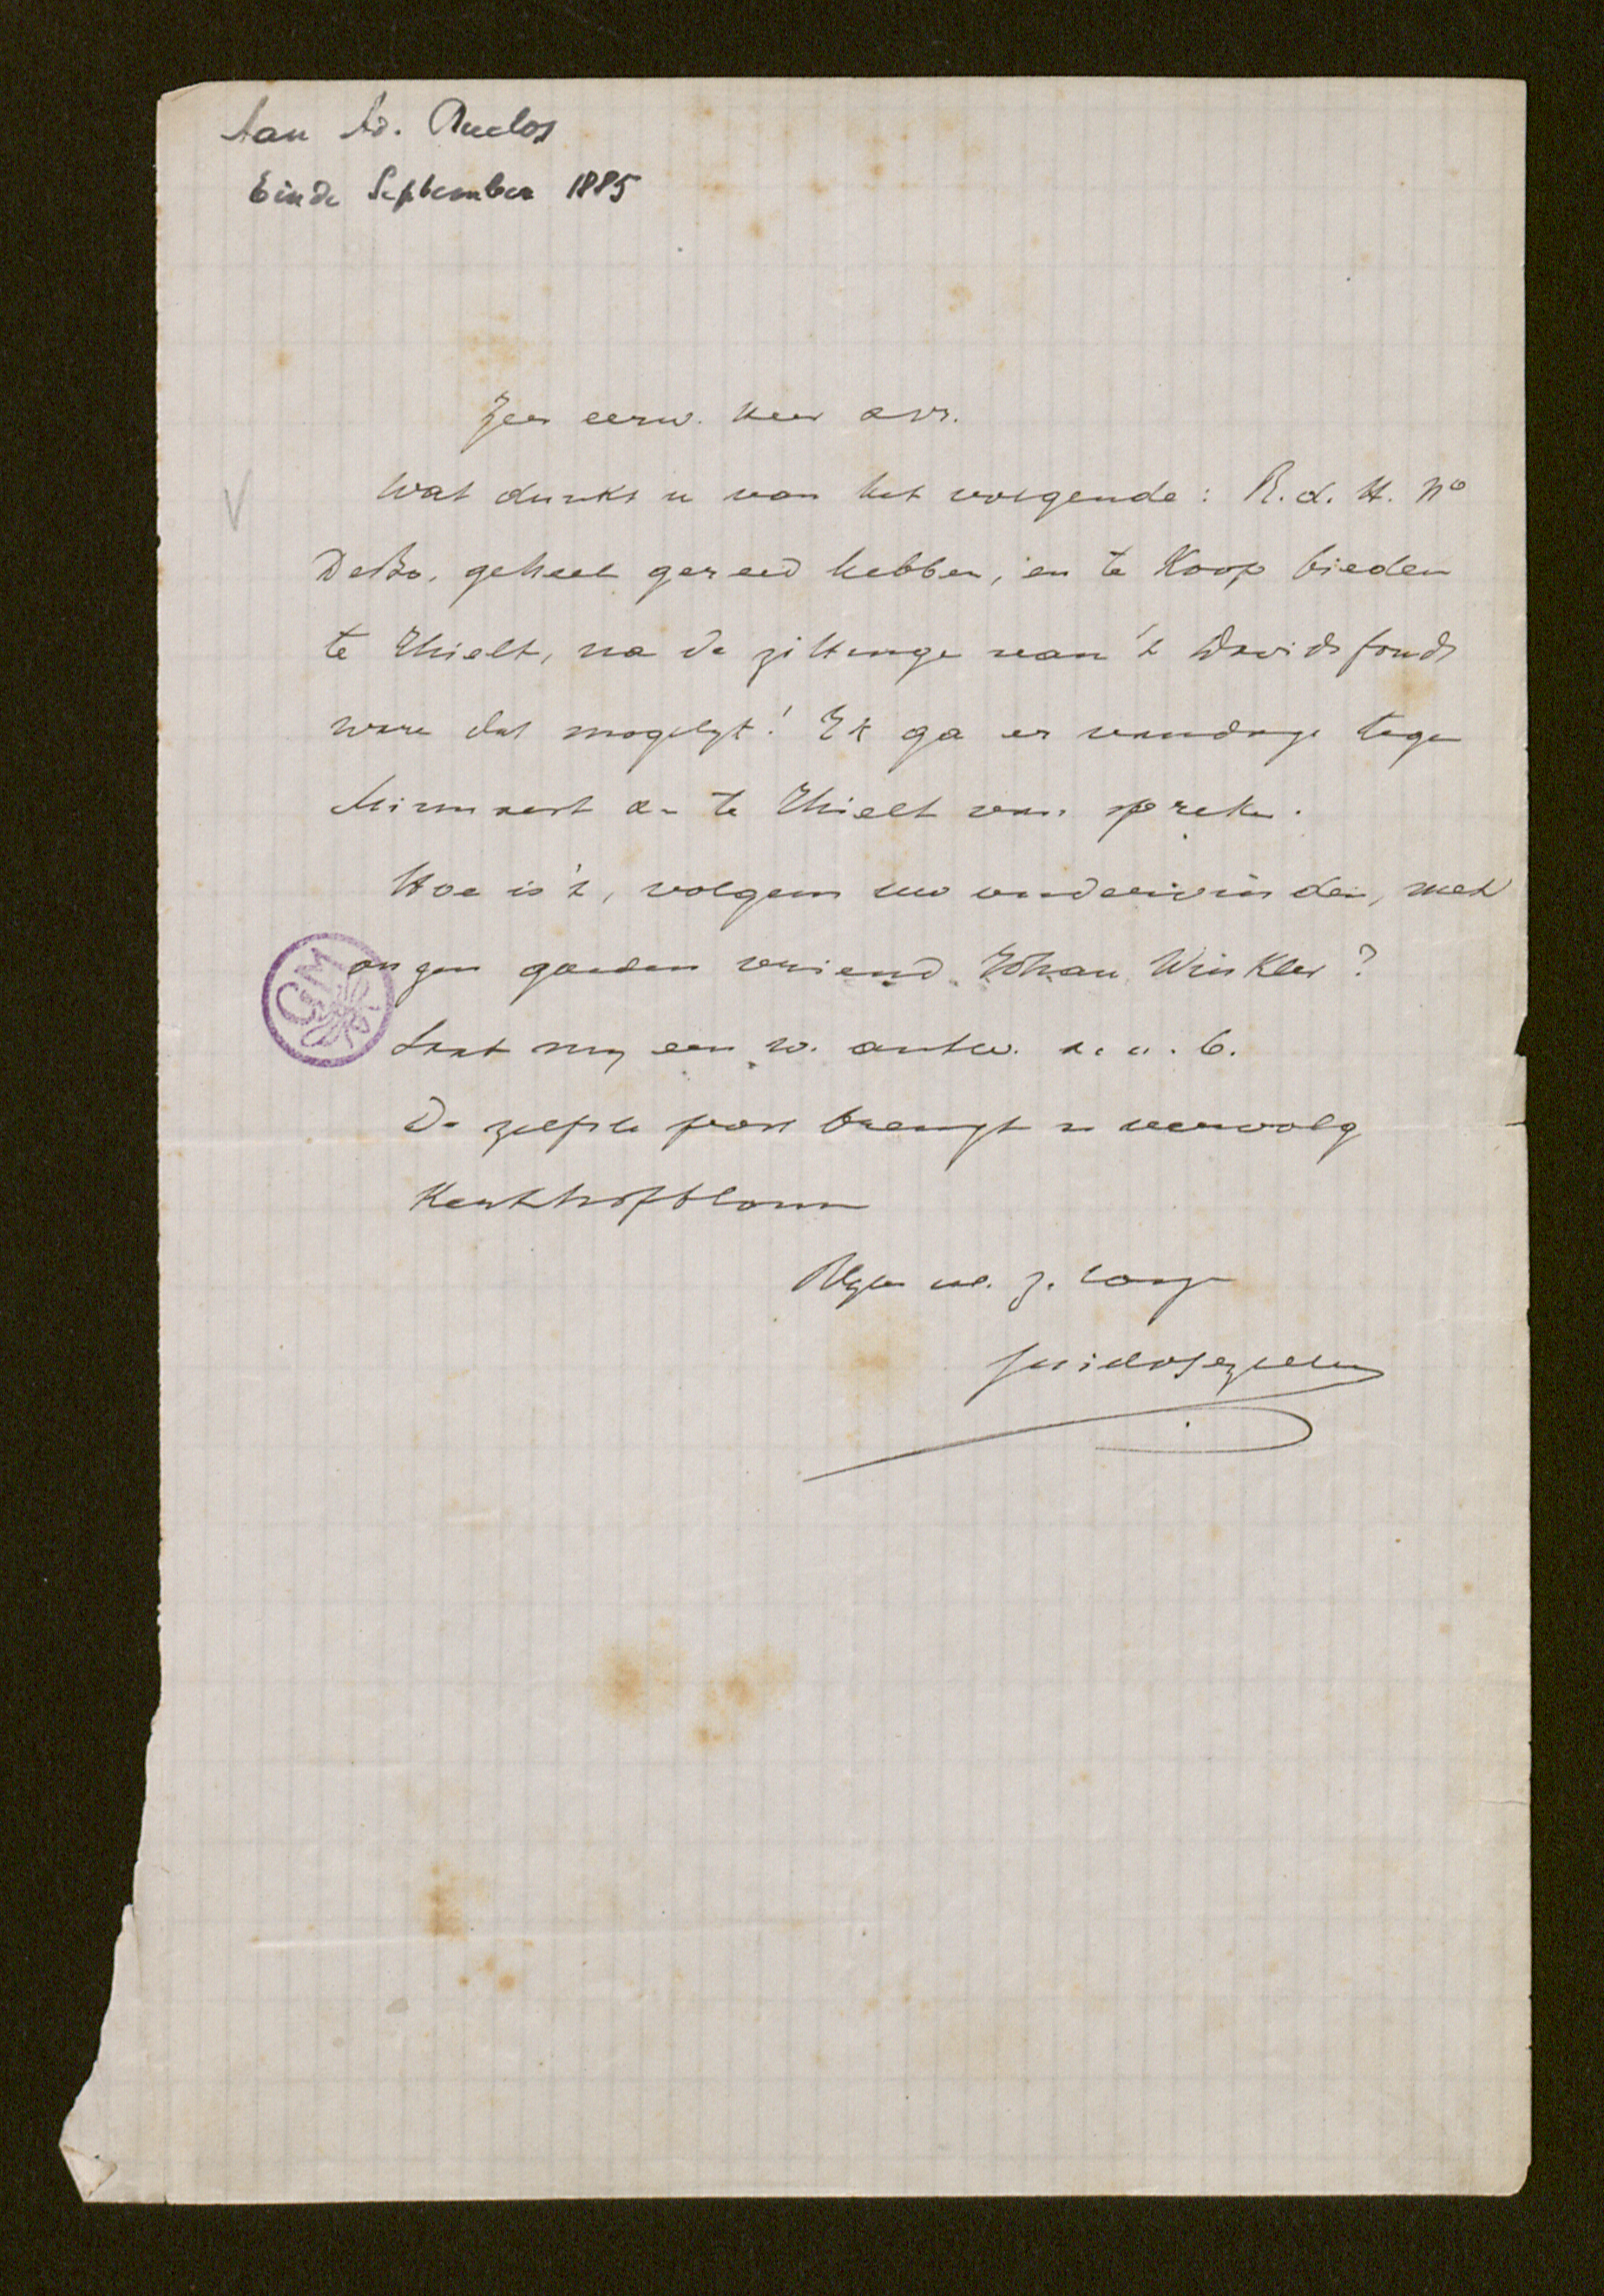 Aan Ad. Duclos
Einde September 1885
Zeer eerw. heer
Wat dunkt u van het volgende: R.d.H. No
DeBo, geheel gereed hebben, en te Koop bieden
te Thielt, na de zittinge van 't Davidsfonds
ware dat mogelyk! Ik ga er vandage tegen
Minnaert en te Thielt van spreken.
Hoe is 't, volgens uw ondervinden, met
onzen goeden vriend Johan Winkler?
Laat my een w. antw. a.u.b.
De zelfste post brengt u vervolg
Kerkhofblom
Blyve uw. z.
Guido Gezelle
GM